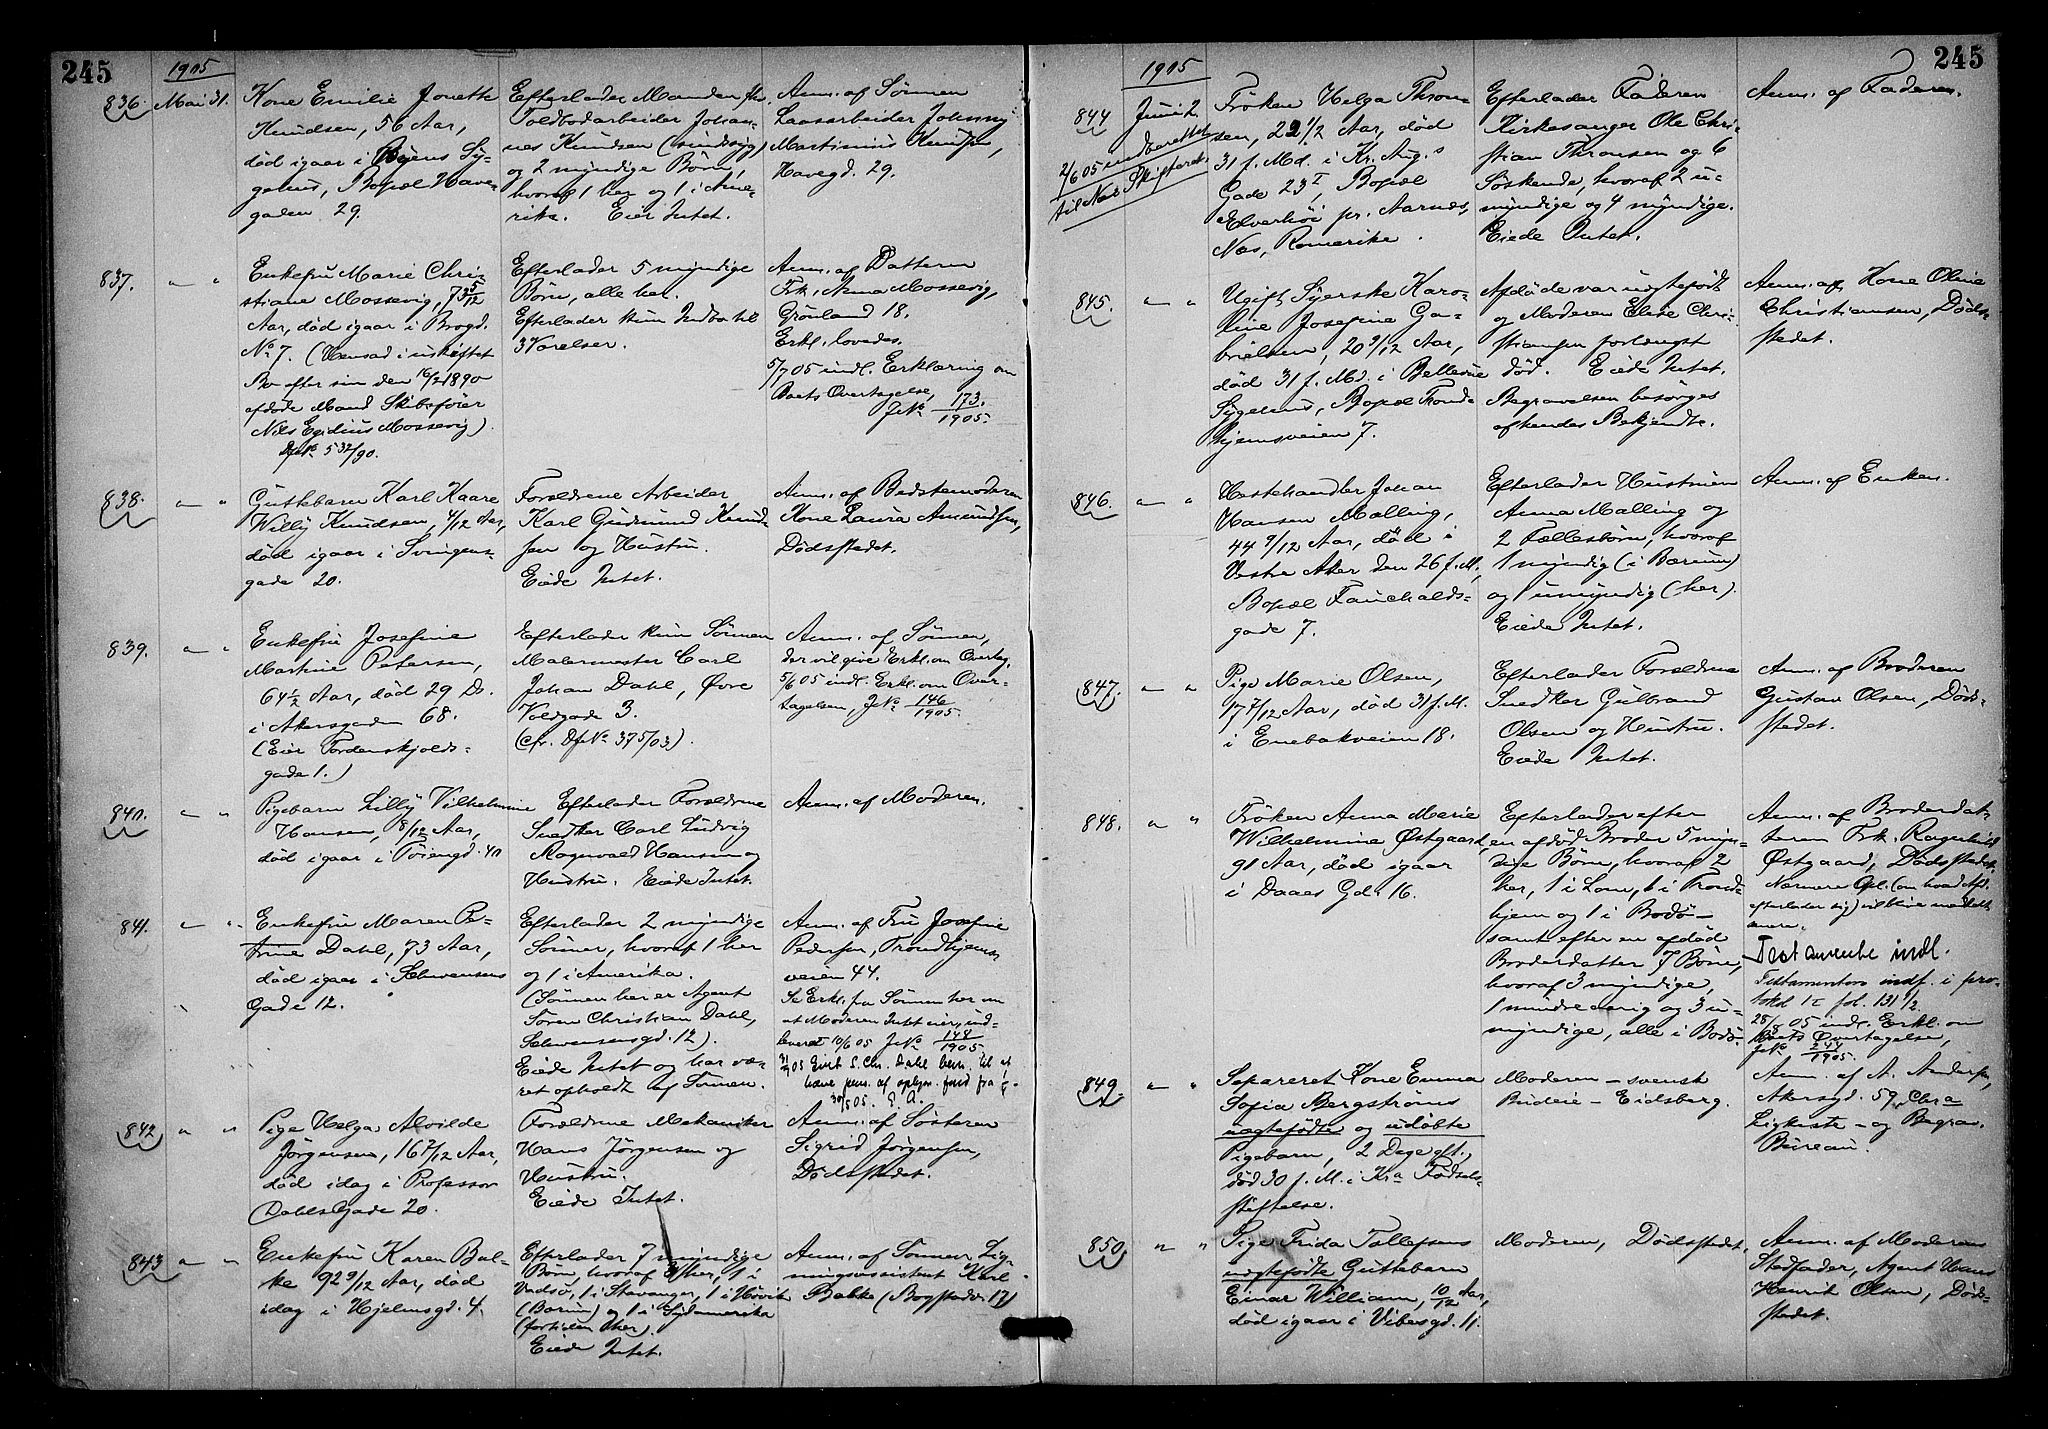 245
1905
836. Mai 31.
Kone Emilie Jonette
Knudsen, 56 Aar,
død igaar i Byens Sy-
gehus, Bopæl Have-
gaden 29.
Efterlader Manden fhv.
Toldbodarbeider Johan-
nes Knudsen (sindssyg)
og 2 myndige Børn,
hvoraf 1 her og 1 i Ame-
rika. Eier Intet.
Anm. af Sønnen
Laasarbeider Johnny
Martinius Knudsen,
Havegd. 29.
837. " "
Enkefru Marie Chri-
stiane Mossevig, 73 5/12
Aar, død igaar i Brogd.
No 7. (Hensad i uskiftet
Bo efter sin den 16/2 1890
afdøde Mand Skibsfører
Nils Egidius Mossevig).
Dfno 532/90.
Efterlader 5 myndige
Børn, alle her.
Efterlader kun Indbo til
3 Værelser.
Anm. af Datteren
Frk. Anna Mossevig,
Grønland 18.
Erkl. lovedes.
5/7 05 indl. Erklæring om
Boets Overtagelse,
JNo 173/1905.
838. " "
Guttebarn Karl Kaare
Willy Knudsen, 4/12 Aar,
død igaar i Svingens-
gade 20.
Forældrene Arbeider
Karl Gudmund Knud-
sen og Hustru.
Eiede Intet.
Anm. af Bedstemoderen
Kone Laura Amundsen,
Dødsstedet.
839. " "
Enkefru Josefine
Martine Petersen,
64 1/2 Aar, død 29 Ds.
i Akersgaden 68.
(Eier Tordenskjolds-
gade 1.)
Efterlader kun Sønnen
Malermester Carl
Johan Dahl, Øvre
Voldgade 3.
(cfr. Dfno 375/03).
Anm. af Sønnen,
der vil give Erkl. om Overtag.
5/6 05 indl. Erkl. om Over-
tagelsen, JNo 146/1905.
840. " "
Pigebarn Lilly Vilhelmine
Hansen, 8/12 Aar,
død igaar i Tøiengd. 40
Efterlader Forældrene
Snedker Carl Ludvig
Ragnvald Hansen og
Hustru. Eiede Intet.
Anm. af Moderen.
841. " "
Enkefru Maren Pe-
trine Dahl, 73 Aar,
død igaar i Schwensens
Gade 12.
Efterlader 2 myndige
Sønner, hvoraf 1 her
og 1 i Amerika.
(Sønnen her er Agent
Søren Christian Dahl,
Schwensensgd. 12).
Eiede Intet og har væ-
ret opholdt af Sønnen.
Anm. af Fru Josefine
Pedersen, Trondhjems
veien 44.
Se Erkl. fra Sønnen her om
at Moderen Intet eier, ind-
leveret 10/6 05 JNo 148/1905
842 " "
Pige Helga Alvilde
Jørgensen, 16 7/12 Aar,
død idag i Professor
Dahls Gade 20.
Forældrene Mekaniker
Hans Jørgensen og
Hustru.
Eiede Intet.
Anm. af Søsteren
Sigrid Jørgensen,
Dødsstedet.
843 " "
Enkefru Karen Bal-
ke 92 9/12 Aar, død
idag i Hjelmsgd. 4.
Efterlader 7 myndige
Børn, hvoraf her, 1 i
Vadsø, 1 i Stavanger, 1 i Høvik
(Bærum) og 1 i Sydamerika
(fortiden her).
Eiede Intet.
Anm. af Sønnen Lig-
ningsassistent Karl
Balke (Bogstadv. 17)
245
1905
844 Juni 2.
2/6 05 indberettet
til Nes Skifteret.
Frøken Helga Thron-
sen, 22 1/2 Aar, død
31 f. Md. i Kr. Aug.s
Gade 23 I, Bopæl
Elverhøi pr. Aarnes,
Nes, Romerike.
Efterlader Faderen
Kirkesanger Ole Chri-
stian Thronsen og 6
Søskende, hvoraf 2 u-
myndige og 4 myndige.
Eiede Intet.
Anm. af Faderen.
845. " "
Ugift Syerske Karo-
line Josefine Ga-
brielsen, 20 9/12 Aar,
død 31 f. Md. i Bellevue
Sygehus, Bopæl Trond-
hjemsveien 7.
Afdøde var uægtefødt
og Moderen Elise Chri-
stiansen forlængst
død. Eiede Intet.
Begravelsen besørges
af hendes Bekjendte.
Anm. af Kone Oline
Christiansen, Døds-
stedet.
846. " "
Hestehandler Johan
Hansen Malling,
44 9/12 Aar, død i
Vestre Aker den 26 f. M.,
Bopæl Fauchalds-
gade 7.
Efterlader Hustruen
Anna Malling og
2 Fællesbørn, hvoraf
1 myndig (i Bærum)
og 1 umyndig (her).
Eiede Intet.
Anm. af Enken.
847. " "
Pige Marie Olsen,
17 7/12 Aar, død 31 f. M.
i Enebakveien 18.
Efterlader Forældrene
Snedker Gulbrand
Olsen og Hustru.
Eiede Intet.
Anm. af Broderen
Gustav Olsen, Døds-
stedet.
848. " "
Frøken Anna Marie
Wilhelmine Østgaard,
91 Aar, død igaar
i Daaes Gd. 16.
Efterlader efter
en afdød Broder 5 myn-
dige Børn, hvoraf 2
her, 1 i Lom, 1 i Trond-
hjem og 1 i Bodø –
samt efter en afdød
Broderdatter 7 Børn,
hvoraf 3 myndige,
1 mindreaarig og 3 u-
myndige, alle i Bodø.
Anm. af Broderdat-
teren Frk. Ragnhild
Østgaard, Dødsstedet.
Nærmere Opl. (om hvad Afd.
efterlader sig) vil blive meddelt
senere.
Testamente indl.
Testamentero indf. i pro-
tokol 12 fol. 131 1/2
28/8 05 indl. Erkl. om
Boets Overtagelse,
JNo 244/1905.
849. " "
Separeret Kone Emma
Sofia Bergstrøms
uægtefødte og udøbte
Pigebarn, 2 Dage glt.,
død 30 f. M. i Kra Fødsels-
stiftelse.
Moderen – svensk
Budeie – Eidsberg.
Anm. af A. Andersen,
Akersgd. 59, Chra
Ligkiste – og Begrav.
Büreau.
850 " "
Pige Frida Tollefsens
uægtefødte Guttebarn
Einar William, 10/12 Aar,
død igaar i Vibesgd. 11.
Moderen, Dødsstedet.
Anm. af Moderens
Stedfader, Agent Hans
Henrik Olsen, Døds-
stedet.